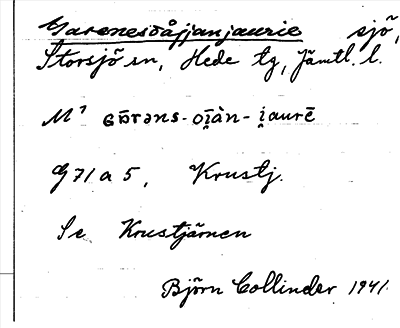 Gasenesdåjjanjaurie sjö,
Storsjö sn, Hede tg, Jämtl. l.
M⁷
G 71 a 5, Krustj.
Se Krustjärnen
Björn Collinder 1941.